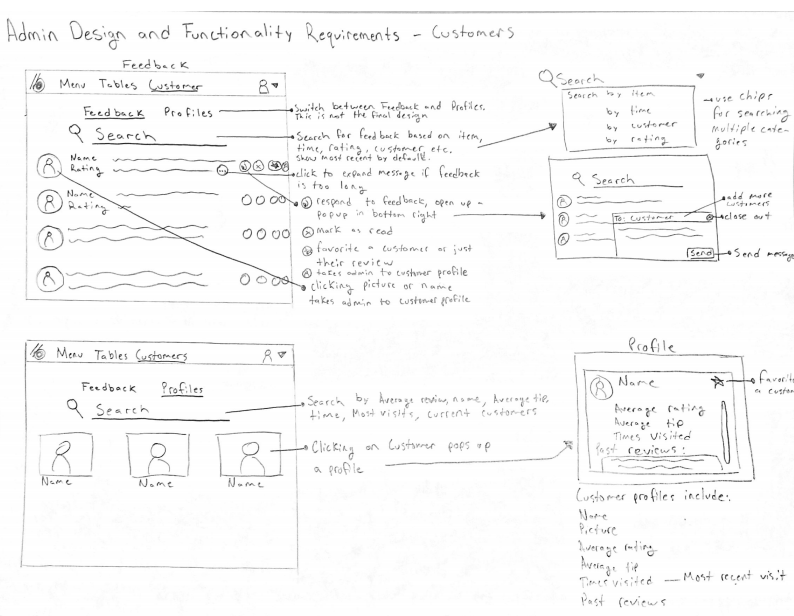 Admin Design and Functionality Requirements - Customers
Feedback
Menu Tables Customer
Feedback Profiles
Search
Name
Rating
Name
Rating
Switch between Feedback and Profiles.
This is not the final design
Search for feedback based on item,
time, rating, customer, etc.
show most recent by default.
click to expand message if feedback
is too long
respond to feedback, open up
popup in bottom right
mark as read
favorite a customer or just
their review
takes admin to customer profile
clicking picture or name
takes admin to customer profile
Search
Search by item
by time
by customer
by rating
use chips
for searching
multiple cate-
gories
Search
To: Customer
Send
add more
customers
close out
Send message
Menu Tables Customers
Feedback Profiles
Search
Name Name Name
Search by Average review, name, Average tip,
time, Most visits, current customers
Clicking on Customer pops up
a profile
Profile
Name
Average rating
Average tip
Times Visited
Past reviews:
Favorite
a custom
Customer profiles include:
Name
Picture
Average rating
Average tip
Times visited — Most recent visit
Past reviews